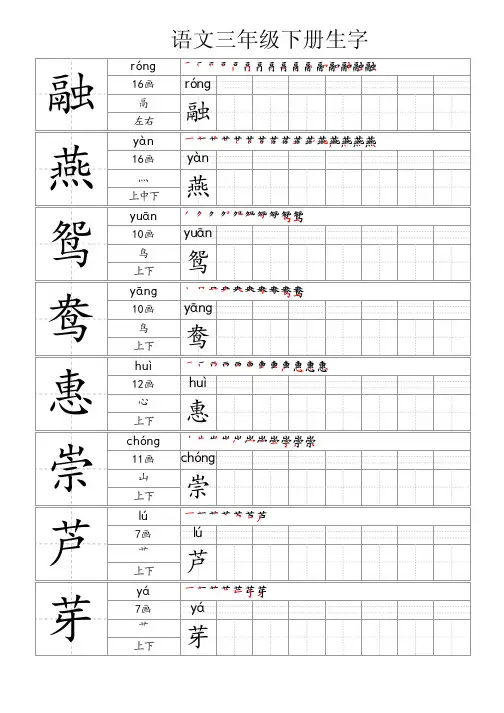 语文三年级下册生字
融
róng
16画
鬲
左右
róng
融
燕
yàn
16画
灬
上中下
yàn
燕
鸳
yuān
10画
鸟
上下
yuān
鸳
鸯
yāng
10画
鸟
上下
yāng
鸯
惠
huì
12画
心
上下
huì
惠
崇
chóng
11画
山
上下
chóng
崇
芦
lú
7画
艹
上下
lú
芦
芽
yá
7画
艹
上下
yá
芽